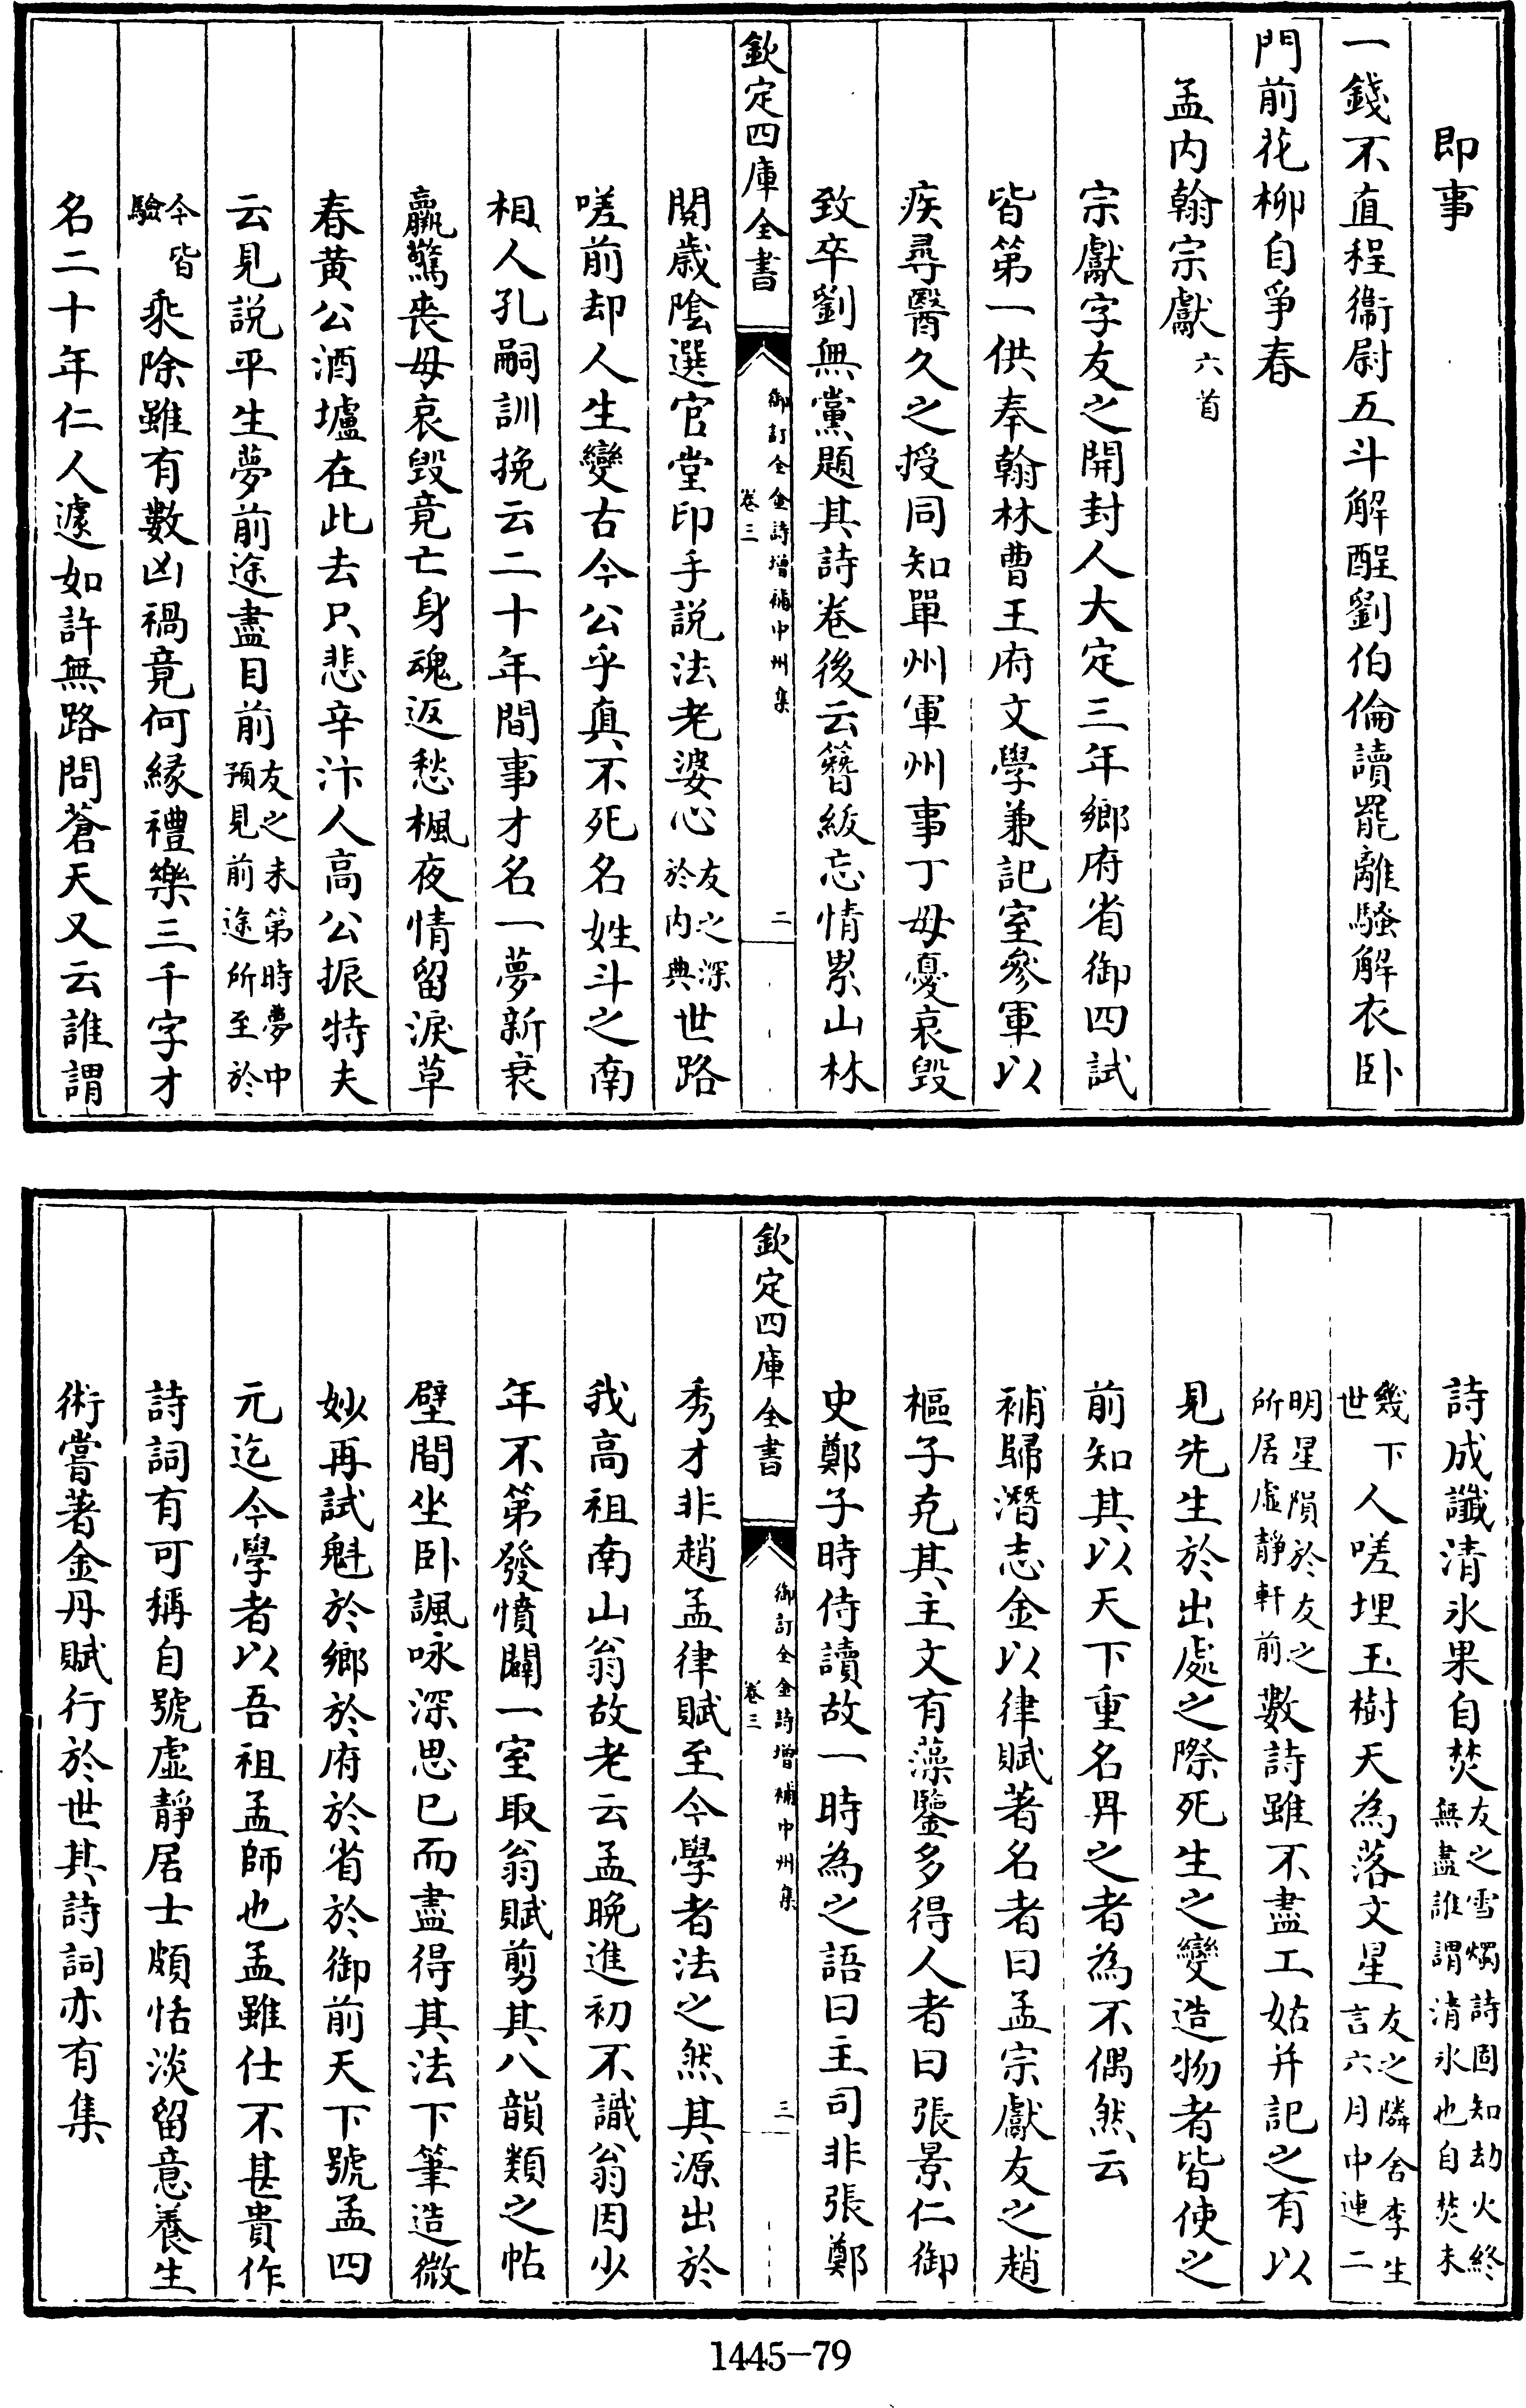 即事
一錢不直程衞尉五斗解酲劉伯倫讀罷離騷解衣卧
門前花柳自爭春
孟内翰宗獻六首
宗獻字友之開封人大定三年鄉府省御四試
皆第一供奉翰林曹王府文學兼記室參軍以
疾尋醫久之授同知單州軍州事丁母憂哀毀
致卒劉無黨題其詩卷後云簪紱忘情累山林
欽定四庫全書
御訂全金詩增補中州集
卷三
二
閱歲陰選官堂印手説法老婆心友之深於内典世路
嗟前却人生變古今公乎真不死名姓斗之南
相人孔嗣訓挽云二十年間事才名一夢新衰
羸驚喪母哀毀竟亡身魂返愁楓夜情留淚草
春黄公酒壚在此去只悲辛汴人高公振特夫
云見説平生夢前途盡目前友之未第時夢中預見前途所至於
今皆驗乘除雖有數凶禍竟何縁禮樂三千字才
名二十年仁人遽如許無路問蒼天又云誰謂
詩成讖清氷果自焚友之雪燭詩固知劫火終無盡誰謂清氷也自焚未
幾下世人嗟埋玉樹天為落文星友之隣舍李生言六月中連二
明星隕於友之所居虚靜軒前數詩雖不盡工姑并記之有以
見先生於出處之際死生之變造物者皆使之
前知其以天下重名畀之者為不偶然云
補歸潛志金以律賦著名者曰孟宗獻友之趙
樞子克其主文有藻鑒多得人者曰張景仁御
史鄭子時侍讀故一時為之語曰主司非張鄭
欽定四庫全書
御訂全金詩增補中州集
卷三
三
秀才非趙孟律賦至今學者法之然其源出於
我高祖南山翁故老云孟晚進初不識翁因少
年不第發憤闢一室取翁賦剪其八韻類之帖
壁間坐卧諷咏深思已而盡得其法下筆造微
妙再試魁於鄉於府於省於御前天下號孟四
元迄今學者以吾祖孟師也孟雖仕不甚貴作
詩詞有可稱自號虚靜居士頗恬淡留意養生
術嘗著金丹賦行於世其詩詞亦有集
1445-79